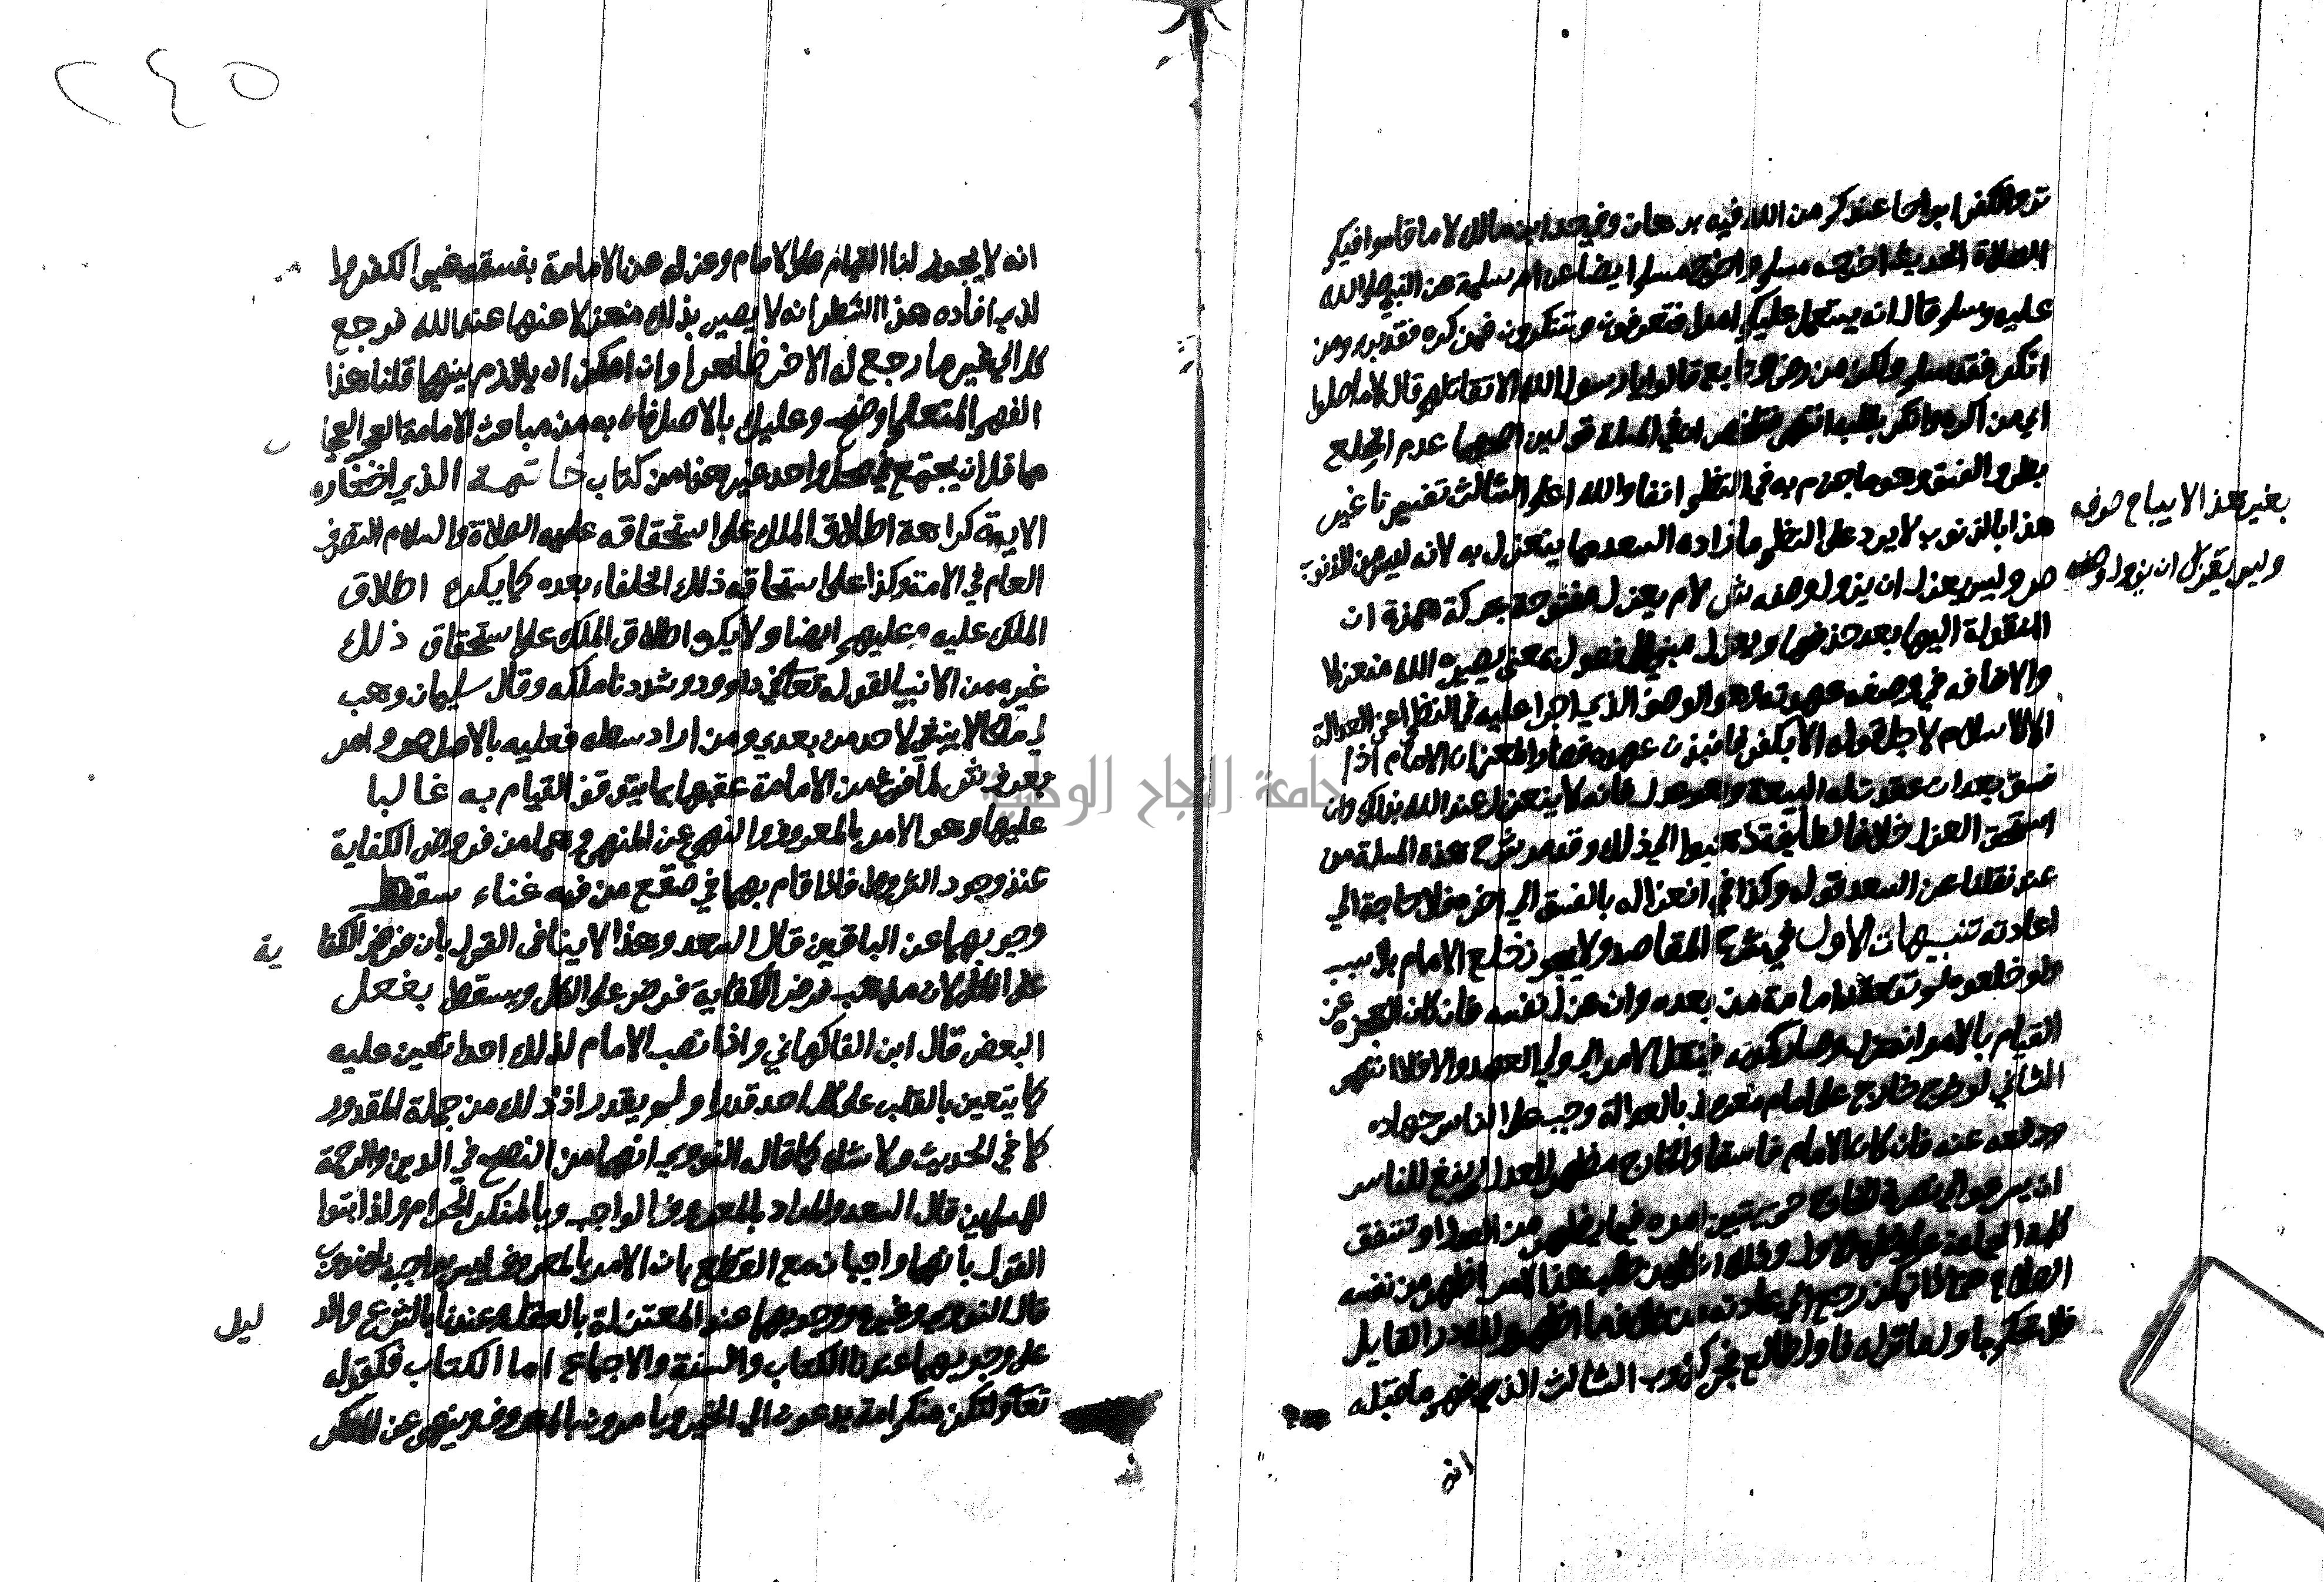 تروا كفرا بواحا عندكم من الله فيه برهان وفي حديث ابن مالك لا ما قاموا فيكم
الصلاة الحديث اخرجه مسلم واخرج مسلم ايضا عن ام سلمة عن النبي صلى الله
عليه وسلم قال انه يستعمل عليكم امرا فتعرفون وتنكرون فمن كره فقد برء ومن
انكر فقد سلم ولكن من رضي وتابع قالوا يا رسول الله الا تقاتلهم قال لا ما صلوا
اي من اكره وانكر بقلبه انتهى فتلخص ان في المسلة قولين اصحهما عدم الخلع
بطرو الفسق وهو ما جزم به في النظم انفا والله اعلم الثالث تفسيرنا غير
هذا بالذنوب لا يرد على النظم ما زاده السعد مما ينعزل به لانه ليس من الذنوب
بغير هذا لا يباح صرفه
وليس يعزل ان يزول وصفه
ص وليس يعزل ان يزول وصفه ش لام يعزل مفتوحة بحركة همزة ان
المنقولة اليها بعد حذفها ويعزل مبني للمفعول بمعنى يصيره الله منعزلا
والاضافة في وصفه عهدية وهو الوصف الذي اجرا عليه في النظم اعني العدالة
لا الاسلام لاجل قوله الا بكفر فانبذن عهده والمعنى ان الامام اذا
فسق بعد ان عقدت له البيعة وهو عدل فانه لا ينعزل عند الله بذلك وان
استحق العزل خلافا لطايفة ذهبوا الى ذلك وقد مر شرح هذه المسلة من
عند نقلنا عن السعد قوله وكذا في انعزاله بالفسق الى اخره فلا حاجة الى
اعادته تنبيهات الاول في شرح المقاصد ولا يجوز خلع الامام بلا سبب
ولو خلعوه لم تنعقد امامة من بعده وان عزل نفسه فان كان لعجزه عن
القيام بالامر انعزل وصار كموته فينتقل الامر الى ولي العهد والا فلا انتهى
الثاني لو خرج خارج على امام معروف بالعدالة وجب على الناس جهاده
ودفعه عنه فان كان الامام فاسقا والخارج مظهر للعدل لم ينبغ للناس
ان يسرعوا الى نصرة الخارج حتى يتبين امره فيما يظهر من العدل او تتفق
كلمة الجماعة على خلع الاول وذلك ان كل من طلب هذا الامر اظهر من نفسه
الصلاح حتى اذا تمكن رجع الى عادته من خلاف ما اظهر ولله در القايل
فلا تحكم باول ما تراه فاول طالع فجر كذوب الثالث الذي فهم ما قبله
انه
٢٤٥
انه لا يجوز لنا القيام على الامام وعزله عن الامامة بفسقه غير الكفر وا
لذي افاده هذا الشطر انه لا يصير بذلك منعزلا عنها عند الله فرجع
كل الى غير ما رجع له الاخر ظاهرا وان امكن ان يلازم بينهما قلنا هذا
الفهم المتعلم اوضح وعليك بالاصل فان به من مباحث الامامة العجب العجا
ب
ما قل ان يجتمع في محل واحد غير هذا من كتاب خاتمة الذي اختاره
الايمة كراهة اطلاق الملك على استحقاقه عليه الصلاة والسلام التصرف
العام في الامة وكذا على استحقاق ذلك الخلفاء بعده كما يكره اطلاق
الملك عليه وعليهم ايضا ولا يكره اطلاق الملك على استحقاق ذلك
غيره من الانبيا لقوله تعالى في داوود وشددنا ملكه وقال سليمان وهب
لي ملكا لا ينبغي لاحد من بعدي ومن اراد بسطه فعليه بالاصل ص وامر
بعرف ش لما فرغ من الامامة عقبها بما يتوقف القيام به غالبا
عليها وهو الامر بالمعروف والنهي عن المنهي وهما من فروض الكفاية
عند وجود الشروط فاذا قام بهما في صقع من فيه غناء سقط
وجوبهما عن الباقين قال السعد وهذا لا ينافى القول بأن فرض الكفا
ية
على الكل لان مذهب فرض الكفاية فرض على الكل ويسقط بفعل
البعض قال ابن الفاكهاني واذا نصب الامام لذلك احدا تعين عليه
كما يتعين بالقلب على كل احد قدر او لم يقدر اذ ذلك من جملة المقدور
كما في الحديث ولا شك كما قاله النووي انهما من النصح في الدين والرحمة
للمسلمين قال السعد والمراد بالمعروف الواجب وبالمنكر الحرام ولذا بتوا
القول بانهما واجبان مع القطع بان الامر بالمعروف ليس بواجب بل مندوب
قال النووي وغيره ووجوبهما عند المعتزلة بالعقل وعندنا بالشرع والد
ليل
على وجوبهما عندنا الكتاب والسنة والاجماع اما الكتاب فكقوله
تعالى ولتكن منكم امة يدعون الى الخير ويامرون بالمعروف وينهون عن المنكر
جامعة النجاح الوطنية